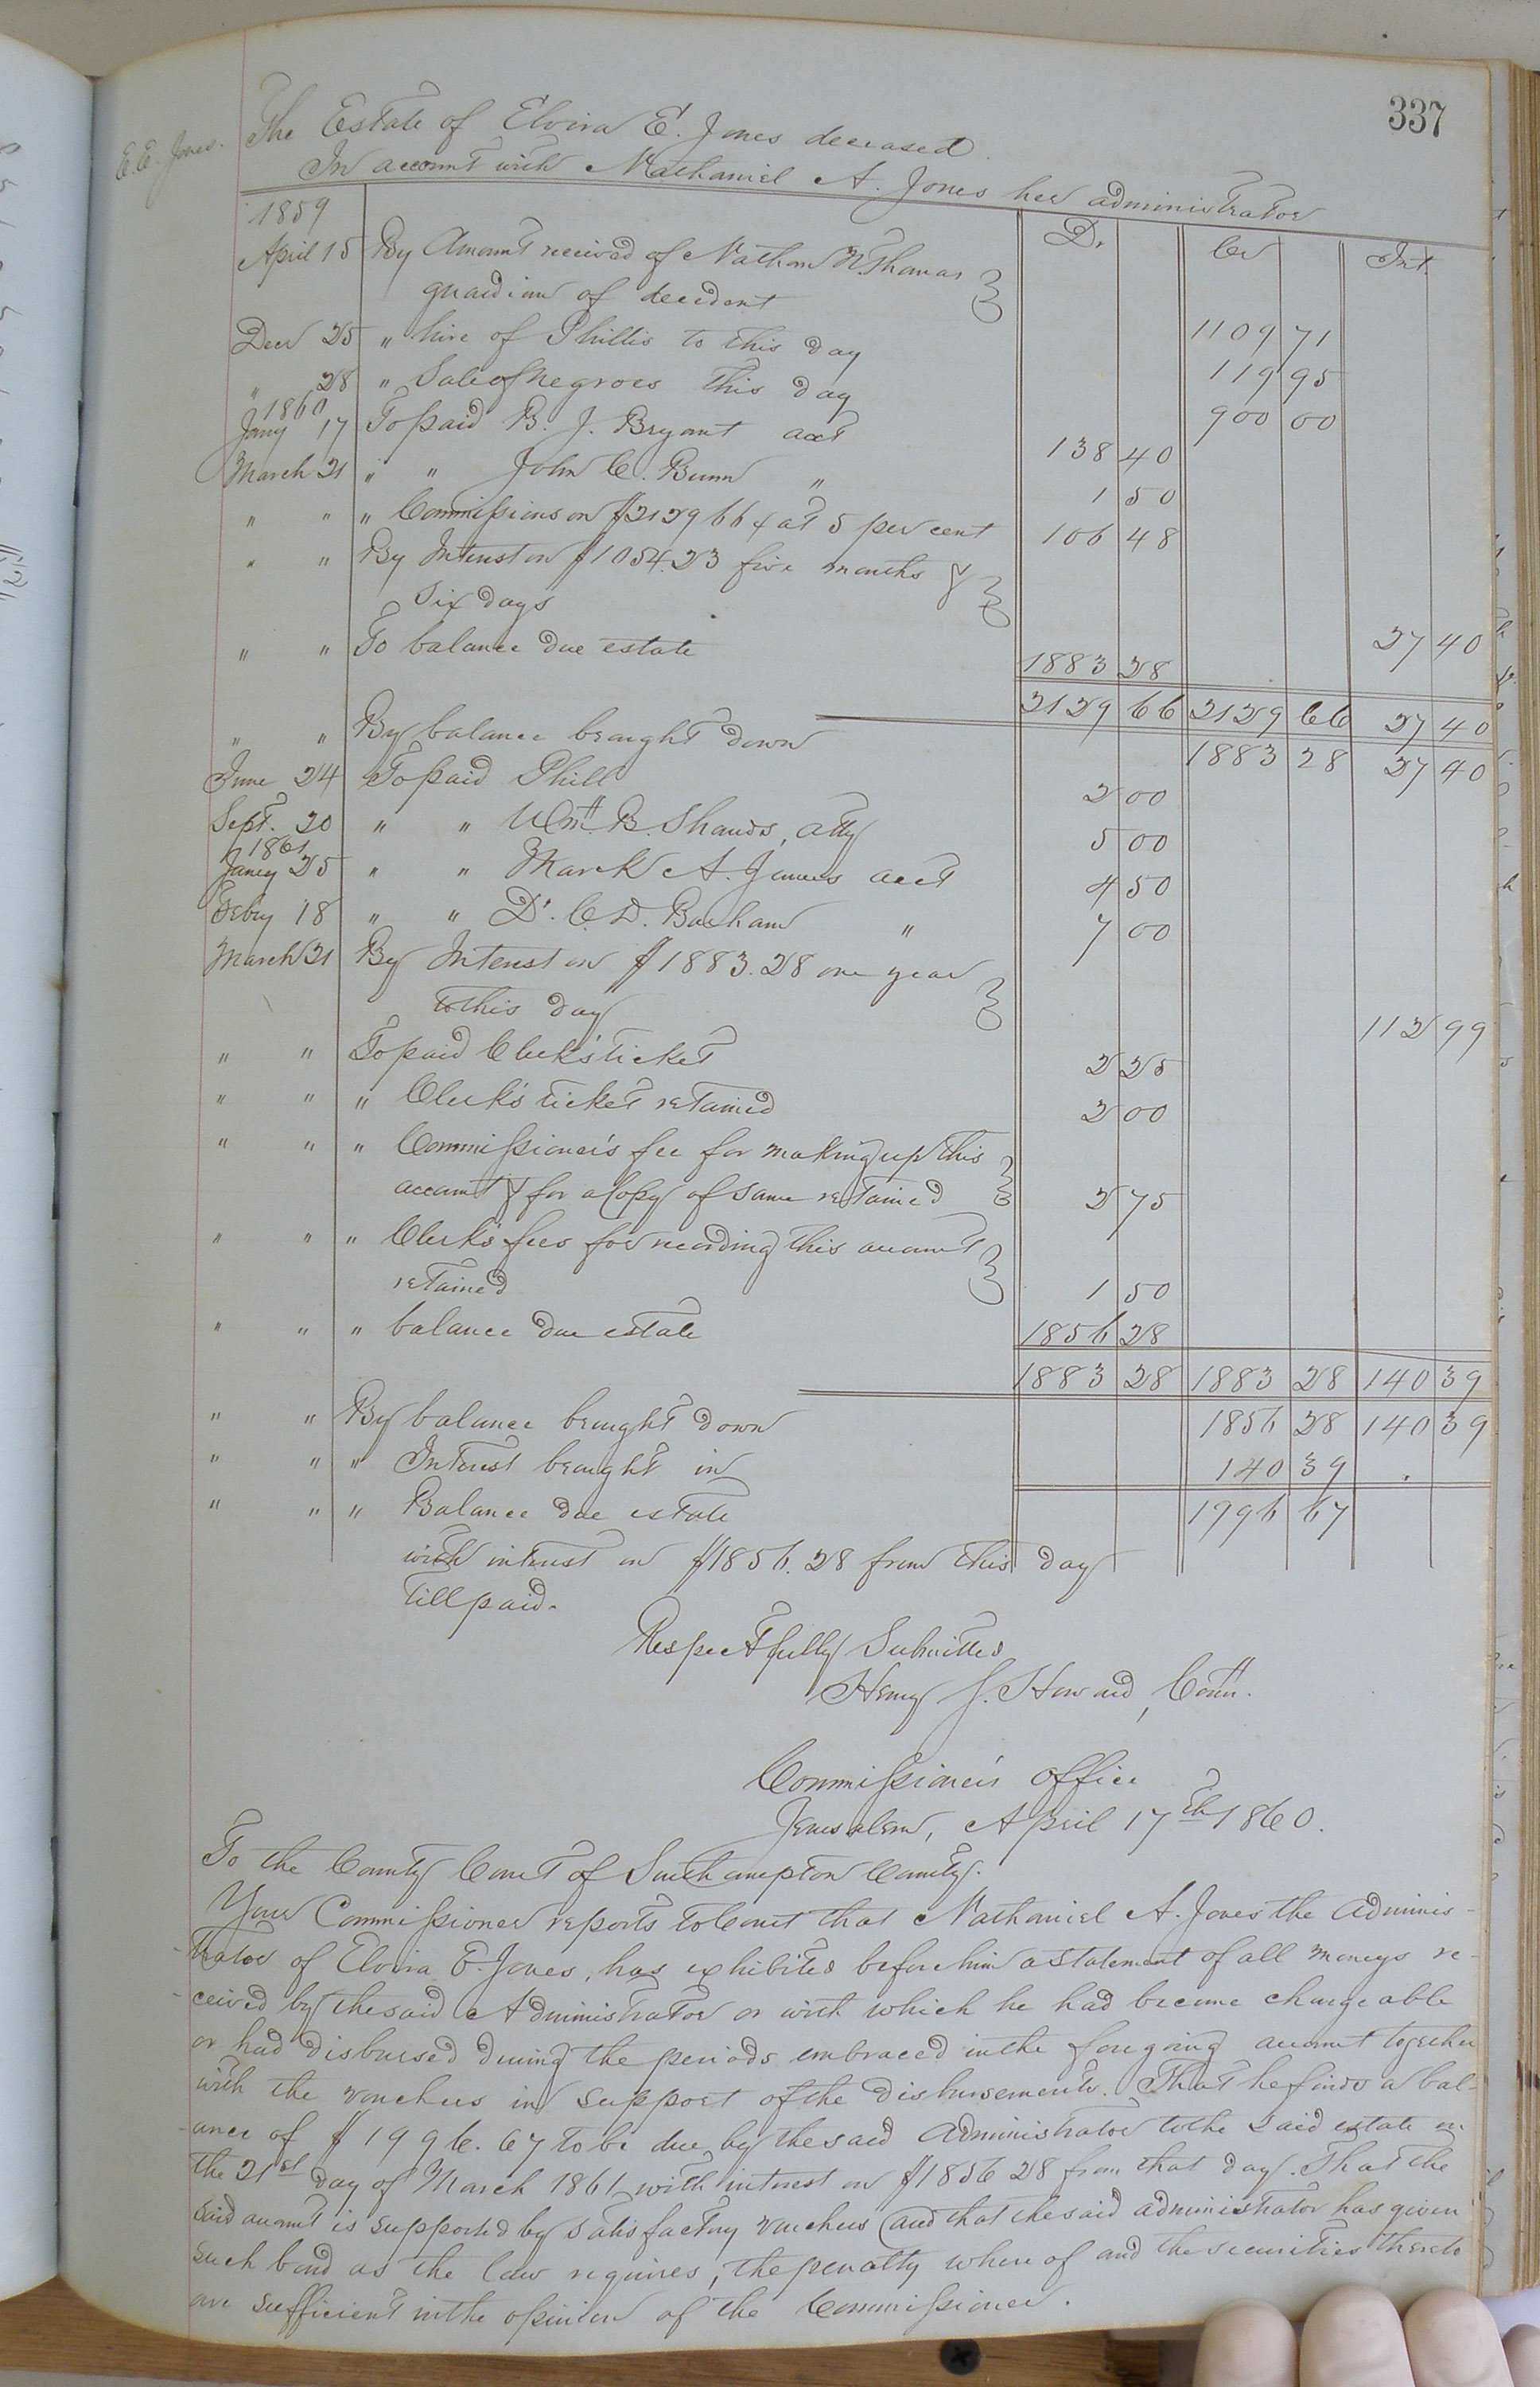 337
E. E. Jones. The Estate of Elvira E. Jones deceased
In account with Nathaniel A. Jones her administrator
1859 D. Cr Int
April 15 By Amount received of Nathan N. Thomas
guardian of decedent 1109 71
Decr 25 " hire of Phillis to this day 119 95
" 28 " Sale of negroes this day 900 00
1860
Jany 17 To paid B. J. Bryant acct 138 40
March 21 " " John C. Bunn " 1 50
" " " Commissions on $2129 66 at 5 per cent 106 48
" " By Interest on $1054.23 five months &
six days 27 40
" " To balance due estate 1883 28
2129 66 2129 66 27 40
" " By balance brought down 1883 28 27 40
June 24 To paid Phill 2 00
Sept. 20 " " Wm. B. Shands, atty 5 00
1861
Jany 25 " " Mark A. James acct 4 50
Feby 18 " " Dr. C. D. Barham " 7 00
March 21 By Interest on $1883.28 one year
to this day 112 99
" " To paid Clerk's ticket 2 25
" " " Clerk's ticket retained 2 00
" " " Commissioner's fee for making up this
account & for a copy of same retained 2 75
" " " Clerk's fees for recording this account
retained 1 50
" " " balance due estate 1856 28
1883 28 1883 28 140 39
" " By balance brought down 1856 28 140 39
" " " Interest brought in 140 39 .
" " " Balance due estate 1996 67
with interest on $1856.28 from this day
till paid.
Respectfully Submitted
Henry J. Howard, Comr.
Commissioner's office
Jerusalem, April 17th 1860.
To the County Court of Southampton County.
Your Commissioner reports to Court that Nathaniel A. Jones the Adminis-
-trator of Elvira E. Jones, has exhibited before him a statement of all moneys re-
-ceived by the said Administrator or with which he had become chargeable
or had disbursed during the periods embraced in the foregoing account together
with the vouchers in support of the disbursements. That he finds a bal-
-ance of $1996.67 to be due by the said Administrator to the said estate on
the 21st day of March 1861 with interest on $1856 28 from that day. That the
said account is supported by satisfactory vouchers and that the said administrator has given
such bond as the law requires, the penalty where of and the securities thereto
are sufficient in the opinion of the Commissioner.